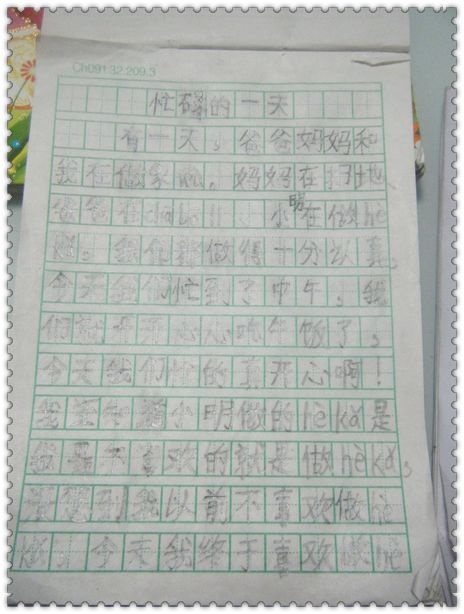 Ch091.32.209.3
忙碌的一天
有一天，爸爸妈妈和
我在做家wu。妈妈在扫地，
爸爸在 小明在做hè
我们都做得十分认真。
今天我们忙到了中午。我
们就开开心心吃午饭了，
今天我们忙的真开心啊！
我 小明做的hè kǎ是
我最不喜欢的就是做hè kǎ，
没想到我以前不喜欢做hè
kǎ，今天我终于喜欢做hè